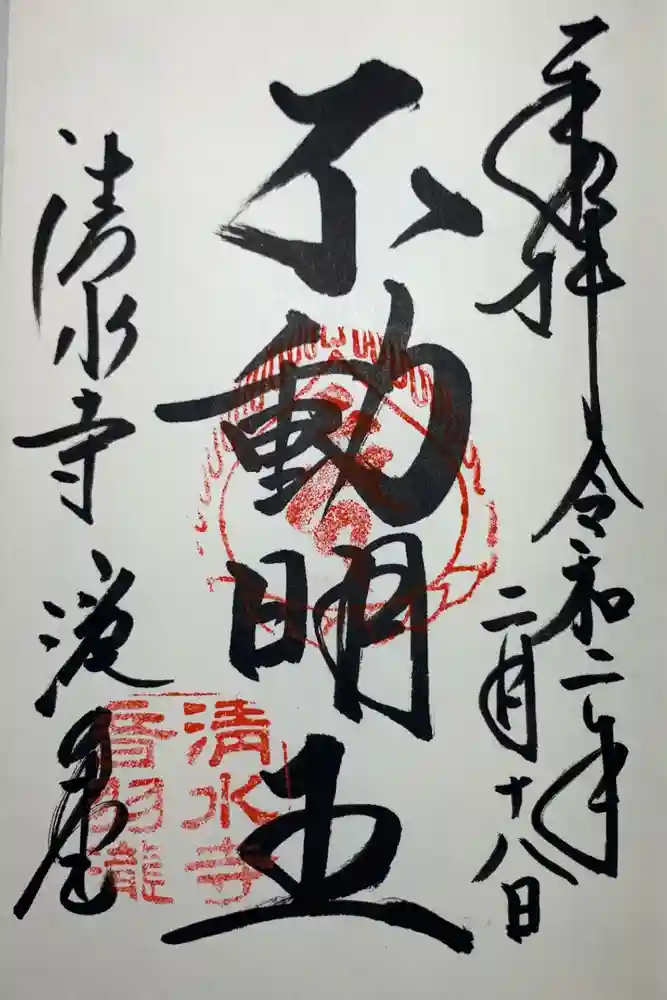 奉拝 令和二年
二月十八日
不動明王
清水寺
清水寺
音羽瀧